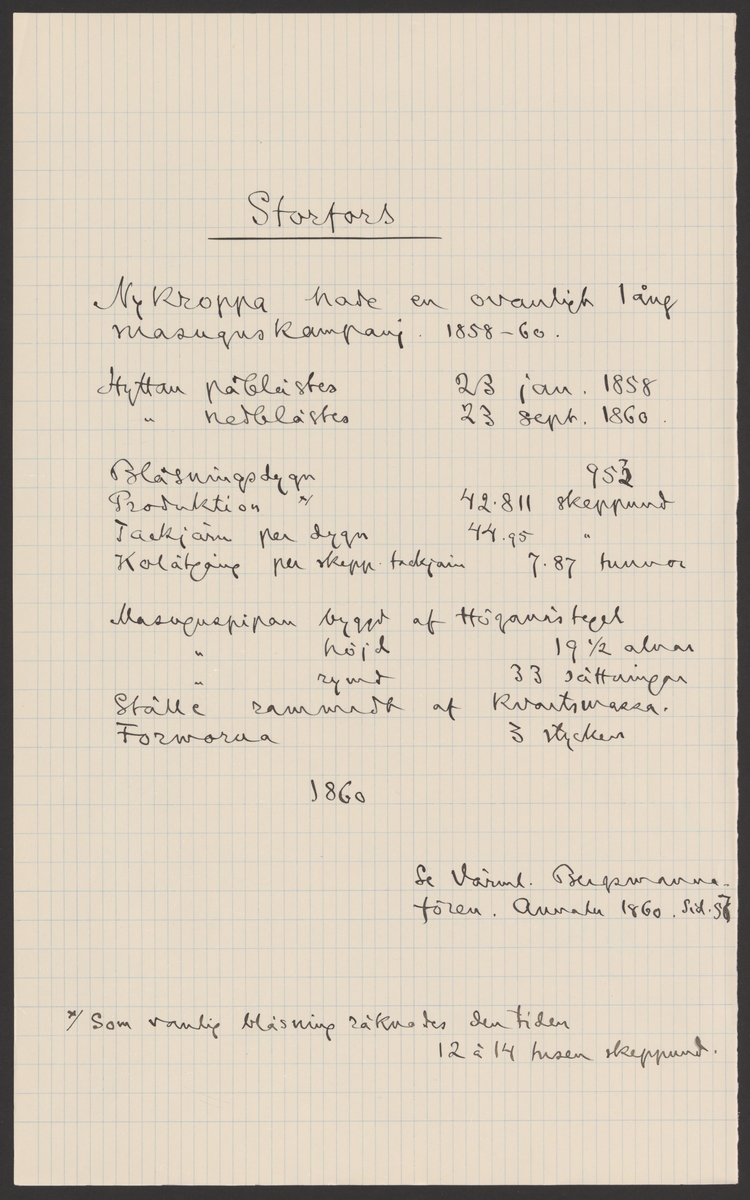 Storfors
Nykroppa hade en ovanligt lång
masugnskampanj. 1858-60.
Hyttan påblåstes 23 jan. 1858
" nedblåstes 23 sept. 1860.
Blåsningsdygn 953
Produktion */ 42.811 skeppund
Tackjärn per dygn 44.95 "
Kolåtgång per skepp. tackjärn 7.87 tunnor
Masugnspipan byggd af Höganästegel
" höjd 19 1/2 alnar
" rymd 33 sättningar
Ställe rammadt af kvartsmassa.
Formorna 3 stycken
1860
Se Värml. Bergsmanna-
fören. Annaler 1860. Sid.
*/ Som vanlig blåsning räknades den tiden
12 à 14 tusen skeppund.